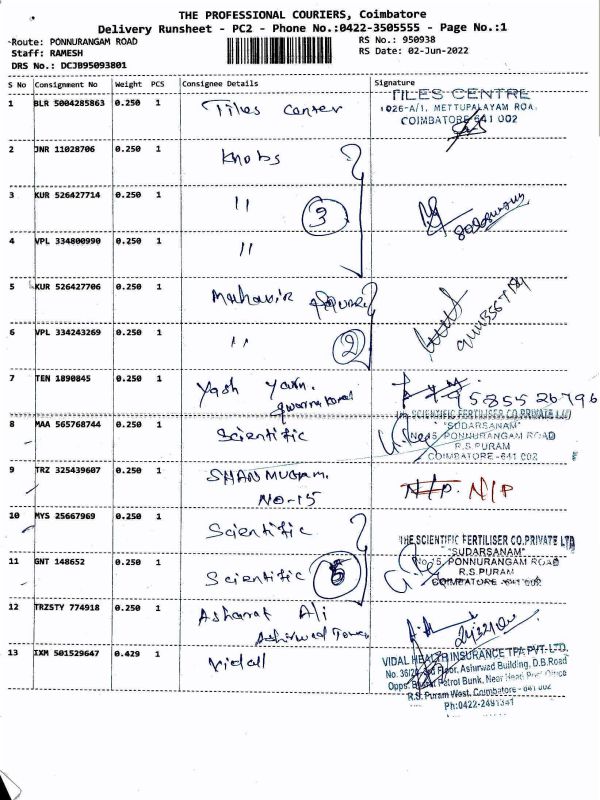 THE PROFESSIONAL COURIERS, Coimbatore
Delivery Runsheet - PC2 - Phone No.:0422-3505555 - Page No.:1
Route: PONNURANGAM ROAD
RS No.: 950938
Staff: RAMESH
RS Date: 02-Jun-2022
DRS No.: DCJB95093801
S No Consignment No Weight PCS Consignee Details Signature
1 BLR 5004285863 0.250 1 Tiles Center
TILES CENTRE
1026-A/1, METTUPALAYAM ROA
COIMBATORE 641 002
2 JNR 11028706 0.250 1 Knobs
3 KUR 526427714 0.250 1 " 3
4 VPL 334800990 0.250 1 "
5 KUR 526427706 0.250 1
6 VPL 334243269 0.250 1 " 2
7 TEN 1890845 0.250 1 Yash
THE SCIENTIFIC FERTILISER CO.PRIVATE LTD
8 MAA 565768744 0.250 1 Scientific
"SUDARSANAM"
No 15, PONNURANGAM ROAD
R.S.PURAM
COIMBATORE-641 002
9 TRZ 325439607 0.250 1 SHANMUGAM.
NO-15
N/P. N/P
10 MYS 25667969 0.250 1 Scientific
THE SCIENTIFIC FERTILISER CO.PRIVATE LTD
"SUDARSANAM"
11 GNT 148652 0.250 1 Scientific 5
No 15, PONNURANGAM ROAD
R.S.PURAM
COIMBATORE-641 002
12 TRZSTY 774918 0.250 1 Asharaf Ali
Ashirwad Tower
13 IXM 501529647 0.429 1 Vidall
VIDAL HEALTH INSURANCE TPA PVT. LTD.
No. 36/20, 3rd Floor, Ashirwad Building, D.B.Road
Opps. Bharat Patrol Bunk, Near Head Post Office
R.S. Puram West, Coimbatore - 641 002
Ph:0422-2491341